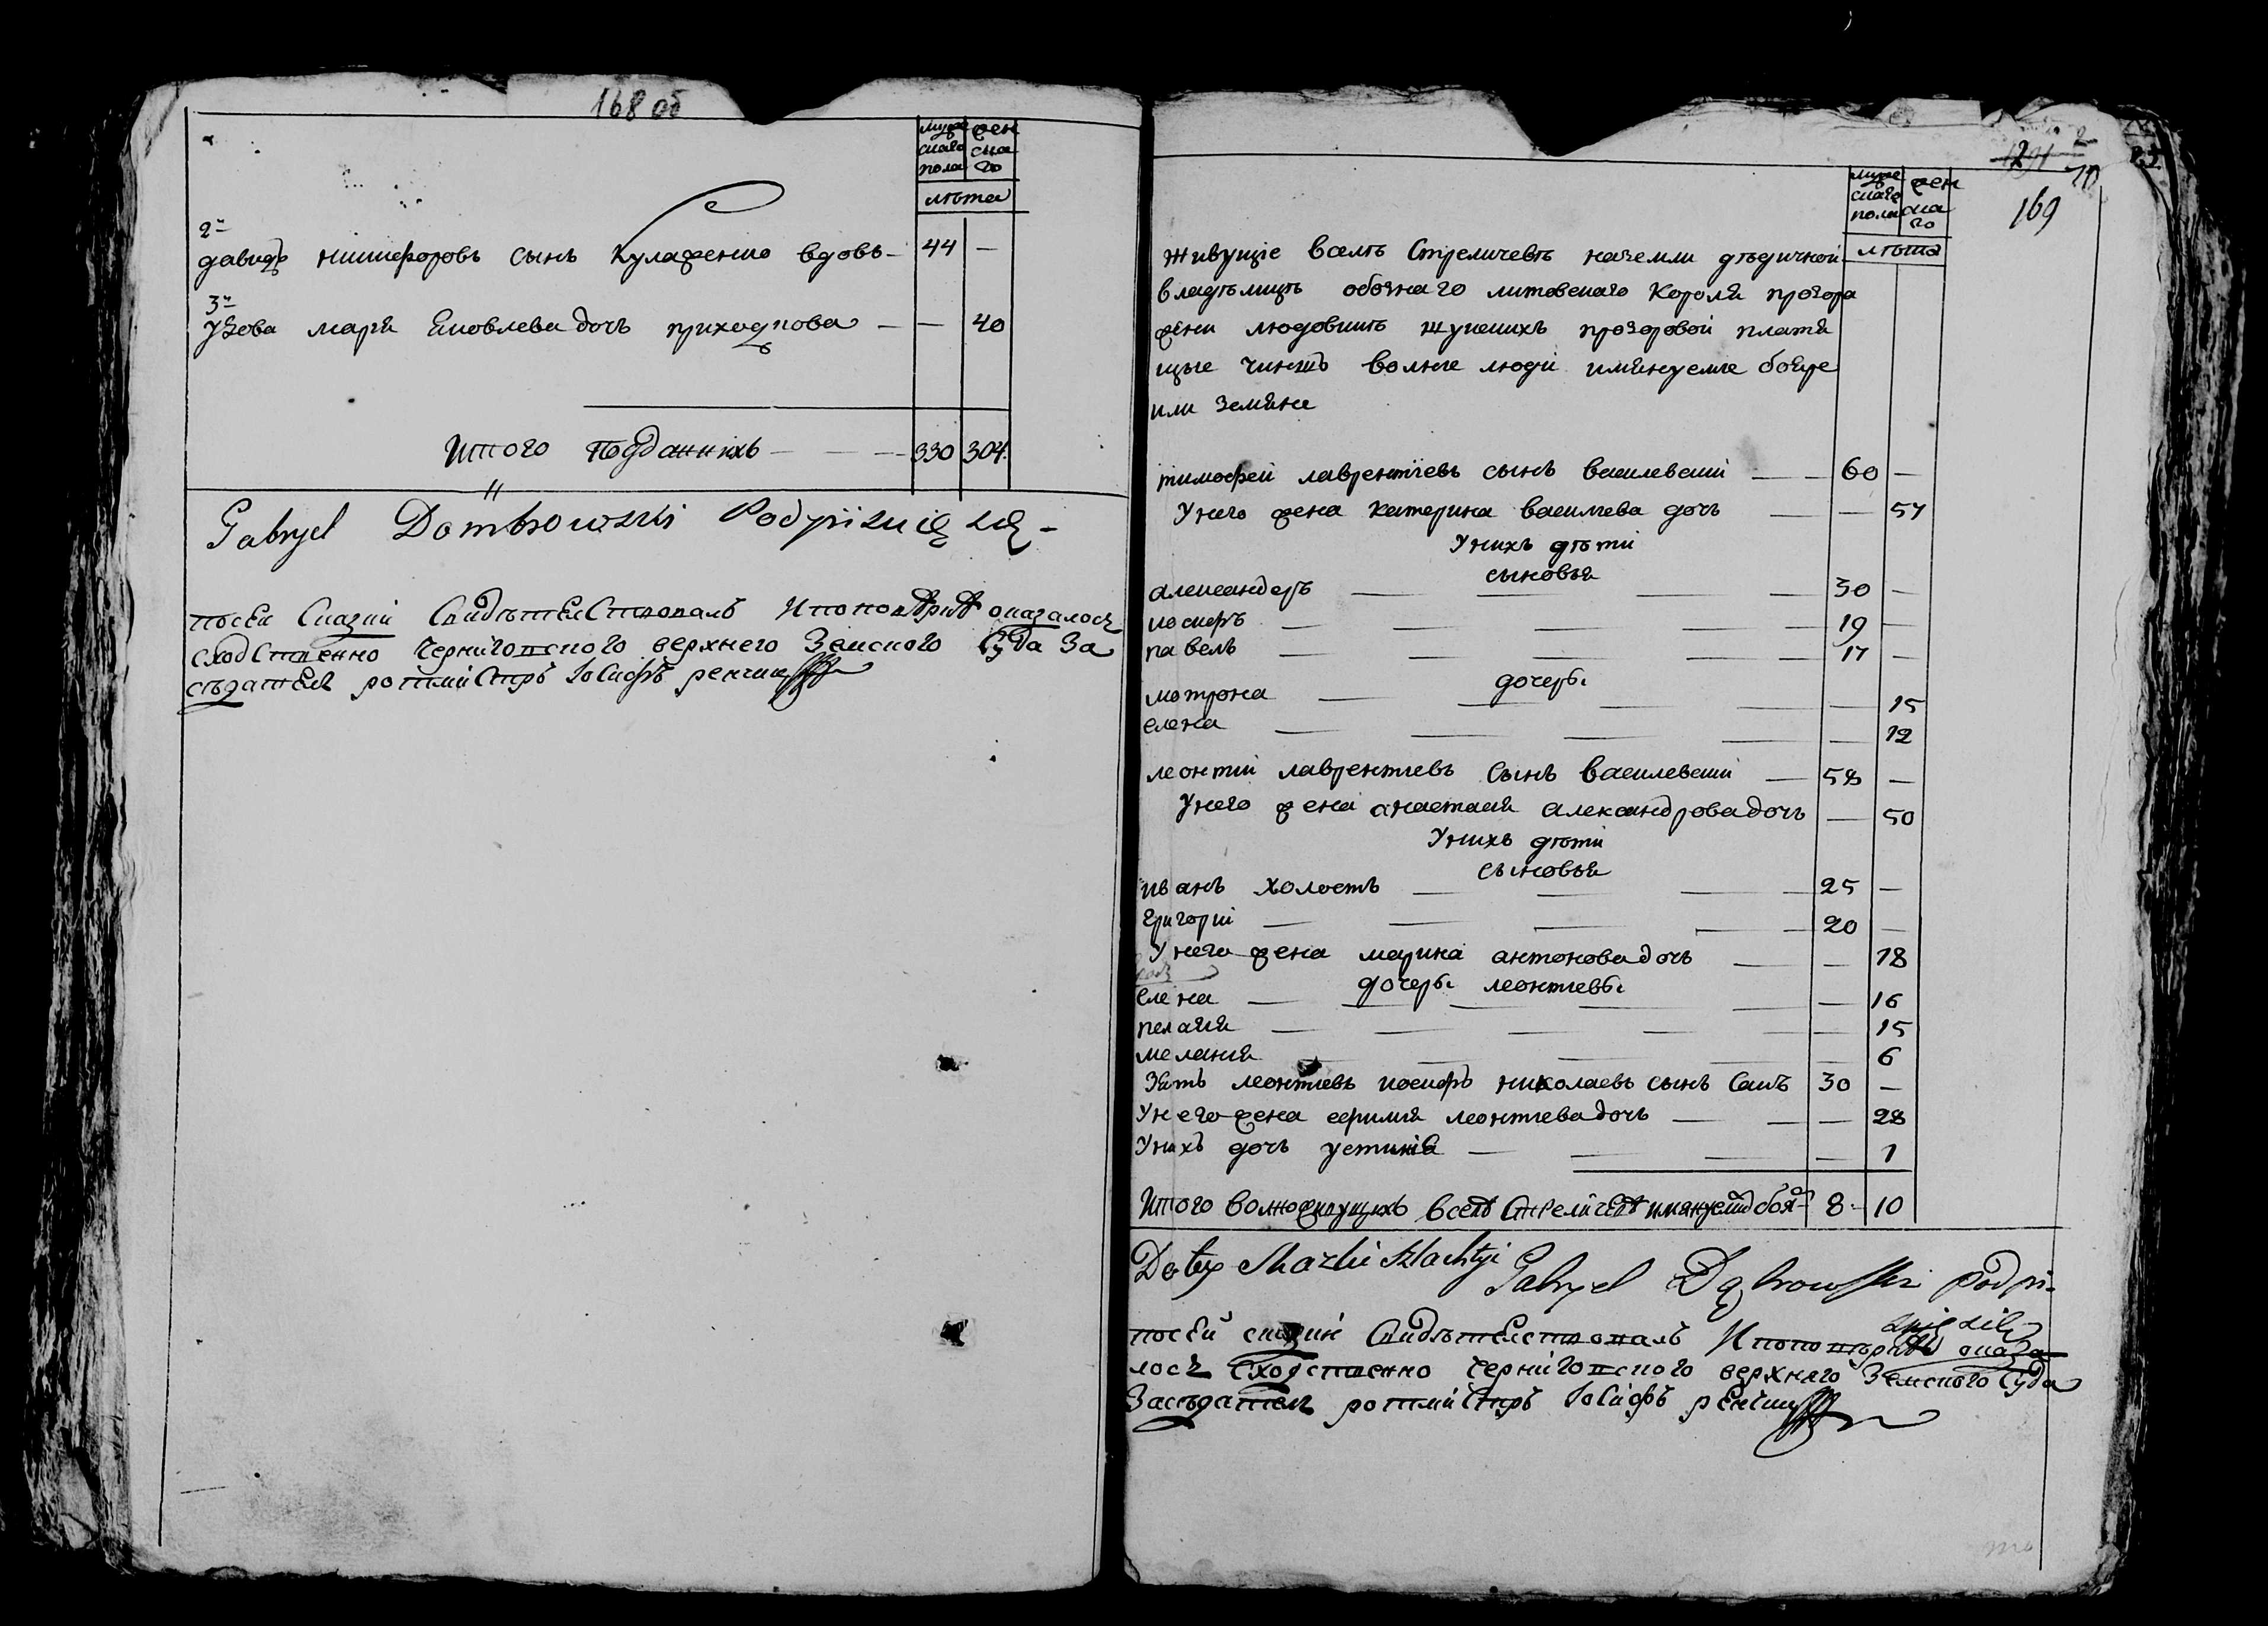 168 об
муже
скаго
пола
жен
ска
го
лѣта
2-
давидъ никифоровъ сынъ Кулаженко вдовъ - 44 —
3-
Удова марія Яковлева дочъ приходкова — — 40
Итого подданнихъ — — — 330 304.
Gabryel Dombrowski Podpisuię się -
посей Сказки Свидѣтелствовалъ Ипоповѣрке оказалосъ
сходственно Черниговского верхнего Земского Суда За
сѣдателъ ротмистръ Іосифъ
169
муже
скаго
пола
жен
ска
го
лѣта
живущіе вселѣ Стреличевѣ наземли дѣдичной
владѣлицѣ обозного литовскаго Короля прозора
жени людовики шуйскихъ прозоровой платя
щые чиншъ волные люди имянуемые бояре
или земяне
тимофей лаврентіевъ сынъ василевскій — — 60 —
Унего жена катерина василиева дочъ — — 57
Унихъ дѣти
сыновья
александеръ — — — — 30 —
иосифъ — — — — 19 —
павелъ — — — — 17 —
дочеры
мотрона — — — — — 15
елена — — — — — 12
леонтій лаврентиевъ Сынъ василевскій — 58 —
Унего жена анастасия александрова дочъ — 50
Унихъ дѣти
сыновья
иванъ холостъ — — — 25 —
григорій — — — — 20 —
Унего жена марина антонова дочъ — — 18
дочеры леонтиевы
Елена — — — — — 16
пелагия — — — — — 15
мелания — — — — 6
Зять леонтиевъ иосифъ николаевъ сынъ Сачъ 30 —
Унего жена ефимия леонтиева дочъ — — — 28
Унихъ дочъ устиния — — — — 1
Итого волножиущихъ вселѣ Стреличевѣ имянуемихъ боя- 8 - 10
Do tey skazki szlachtyi Gabryel Dąbrowski podpi-
suię się
посей сказки Свидѣтелствовалъ Ипоповѣрке оказа
лосъ Сходственно Черниговского верхнего Земского Суда
Засѣдателъ ротмистръ Іосифъ